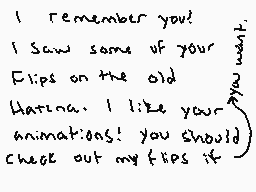 I remember you!
I saw some of your
Flips on the old
Hatena. I like your
animations! you should
check out my flips if
you want.